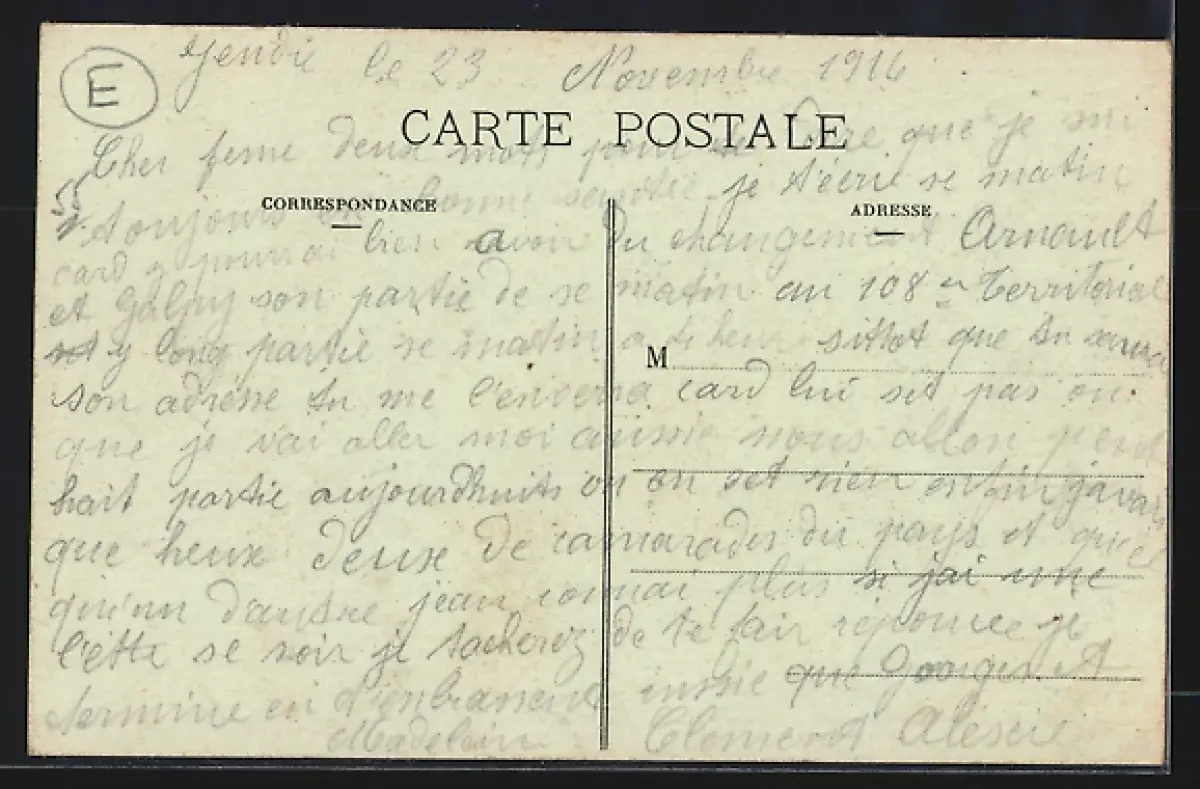 E
Jendie le 23 Novembre 1916
CARTE POSTALE
Cher feme deux mots pour te dire que je sui
55
toujours en bonne sentée je t'écri se matin
CORRESPONDANCE
ADRESSE
card y pourrai bien avoir du changement Arnault
et son partie de se matin au 108 e Territorial
y long partie se matin a heur sittot que tu saura
M
son adresse tu me l'enverra card lui set pas ou
que je vai aller moi aussie nous allon peut
hait partie aujourdhuits on en set rien enfin javais
que heux deux de camarades du pays et
qu'un d'autre jean conai plus si jai une
lettre se soir je tacherez de te fair reponce je
termine en t'enbrasent que Georges et
Madelein Clement